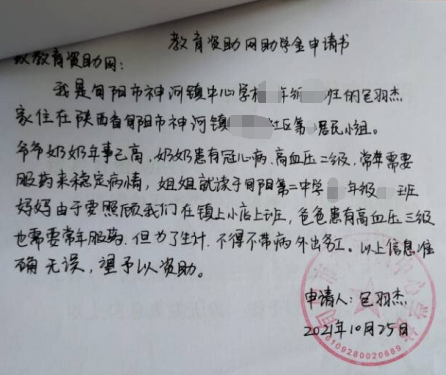 教育资助网助学金申请书
致教育资助网：
我是旬阳市神河镇中心学校 年 班的包羽杰
家住在陕西省旬阳市神河镇 社区第 居民小组。
爷爷奶奶年事已高，奶奶患有冠心病、高血压二级，常年需要
服药来稳定病情，姐姐就读于旬阳第二中学 年级 班
妈妈由于要照顾我们在镇上小店上班，爸爸患有高血压三级
也需要常年服药。但为了生计，不得不带病外出务工，以上信息准
确无误，望予以资助。
申请人：包羽杰
2021年10月25日
6109280020689